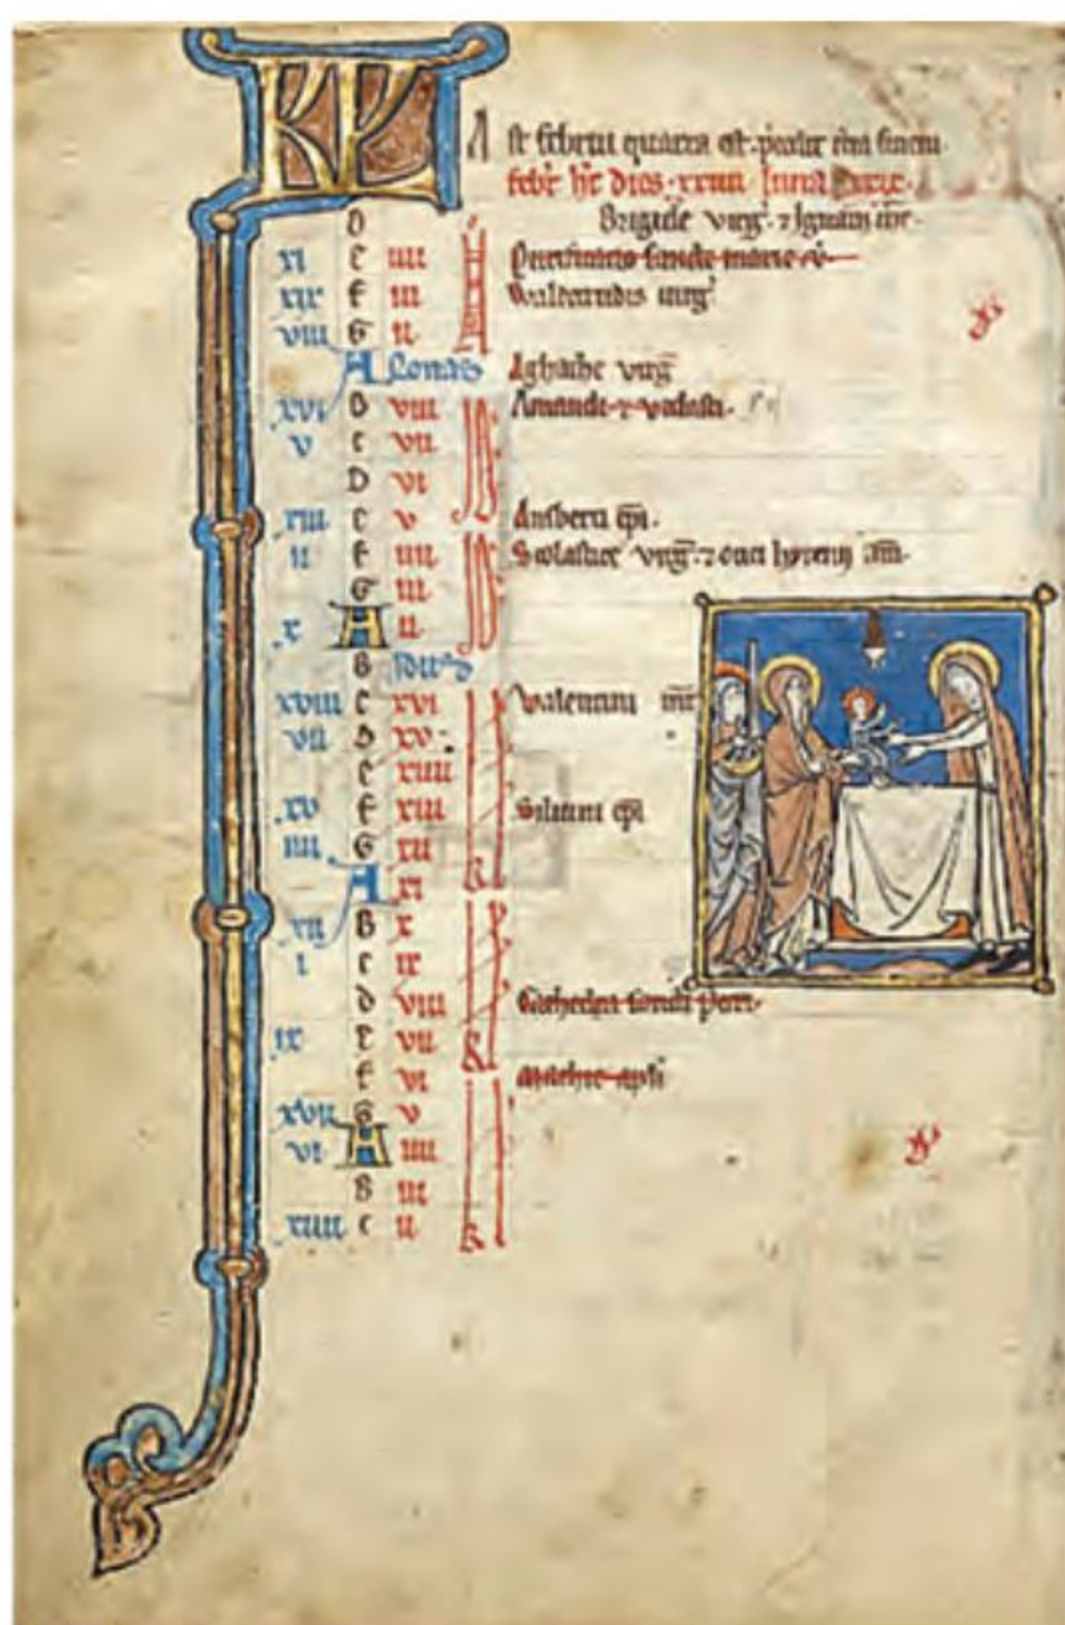 KL
A st februi quarta est
febr ht dies xxviii luna xxix
D Brigide virg 7 Ignatii mr
xi E iiii Purificatio sancte marie v
xix F iii Waltetrudis virg
viii G ii
A Nonas Aghathe virg
xvi B viii Amandi 7 vedasti
v C vii
D vi
xiii E v Ausberti epi
ii F iiii Scolastice virg 7
G iii
x A ii
B Idus
xviii C xvi Valentini mr
vii D xv
E xiiii
xv F xiii Siluini epi
iiii G xii
A xi
xii B x
i C ix
D viii Cathedra sancti Petri
ix E vii
F vi Mathie apli
xvii G v
vi A iiii
B iii
xiiii C ii